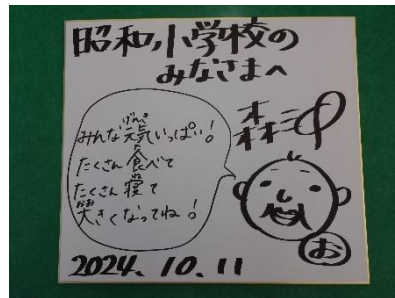 昭和小学校の
みなさまへ
みんな元気いっぱい!
げんき
たくさん食べて
た
たくさん寝て
ね
大きくなってね!
おお
お
2024.10.11